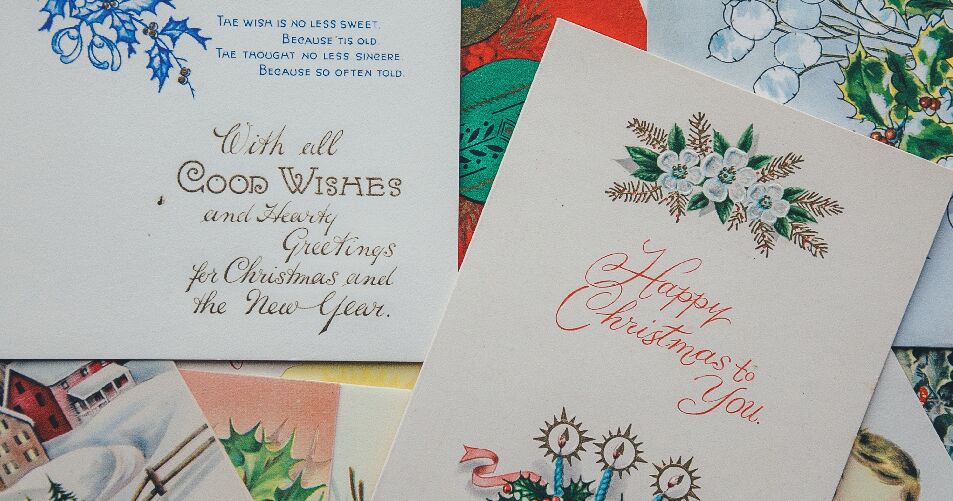 THE WISH IS NO LESS SWEET,
BECAUSE 'TIS OLD.
THE THOUGHT NO LESS SINCERE
BECAUSE SO OFTEN TOLD.
With all
GOOD WISHES
and Hearty
Greetings
for Christmas and
the New Year.
Happy
Christmas to
You.